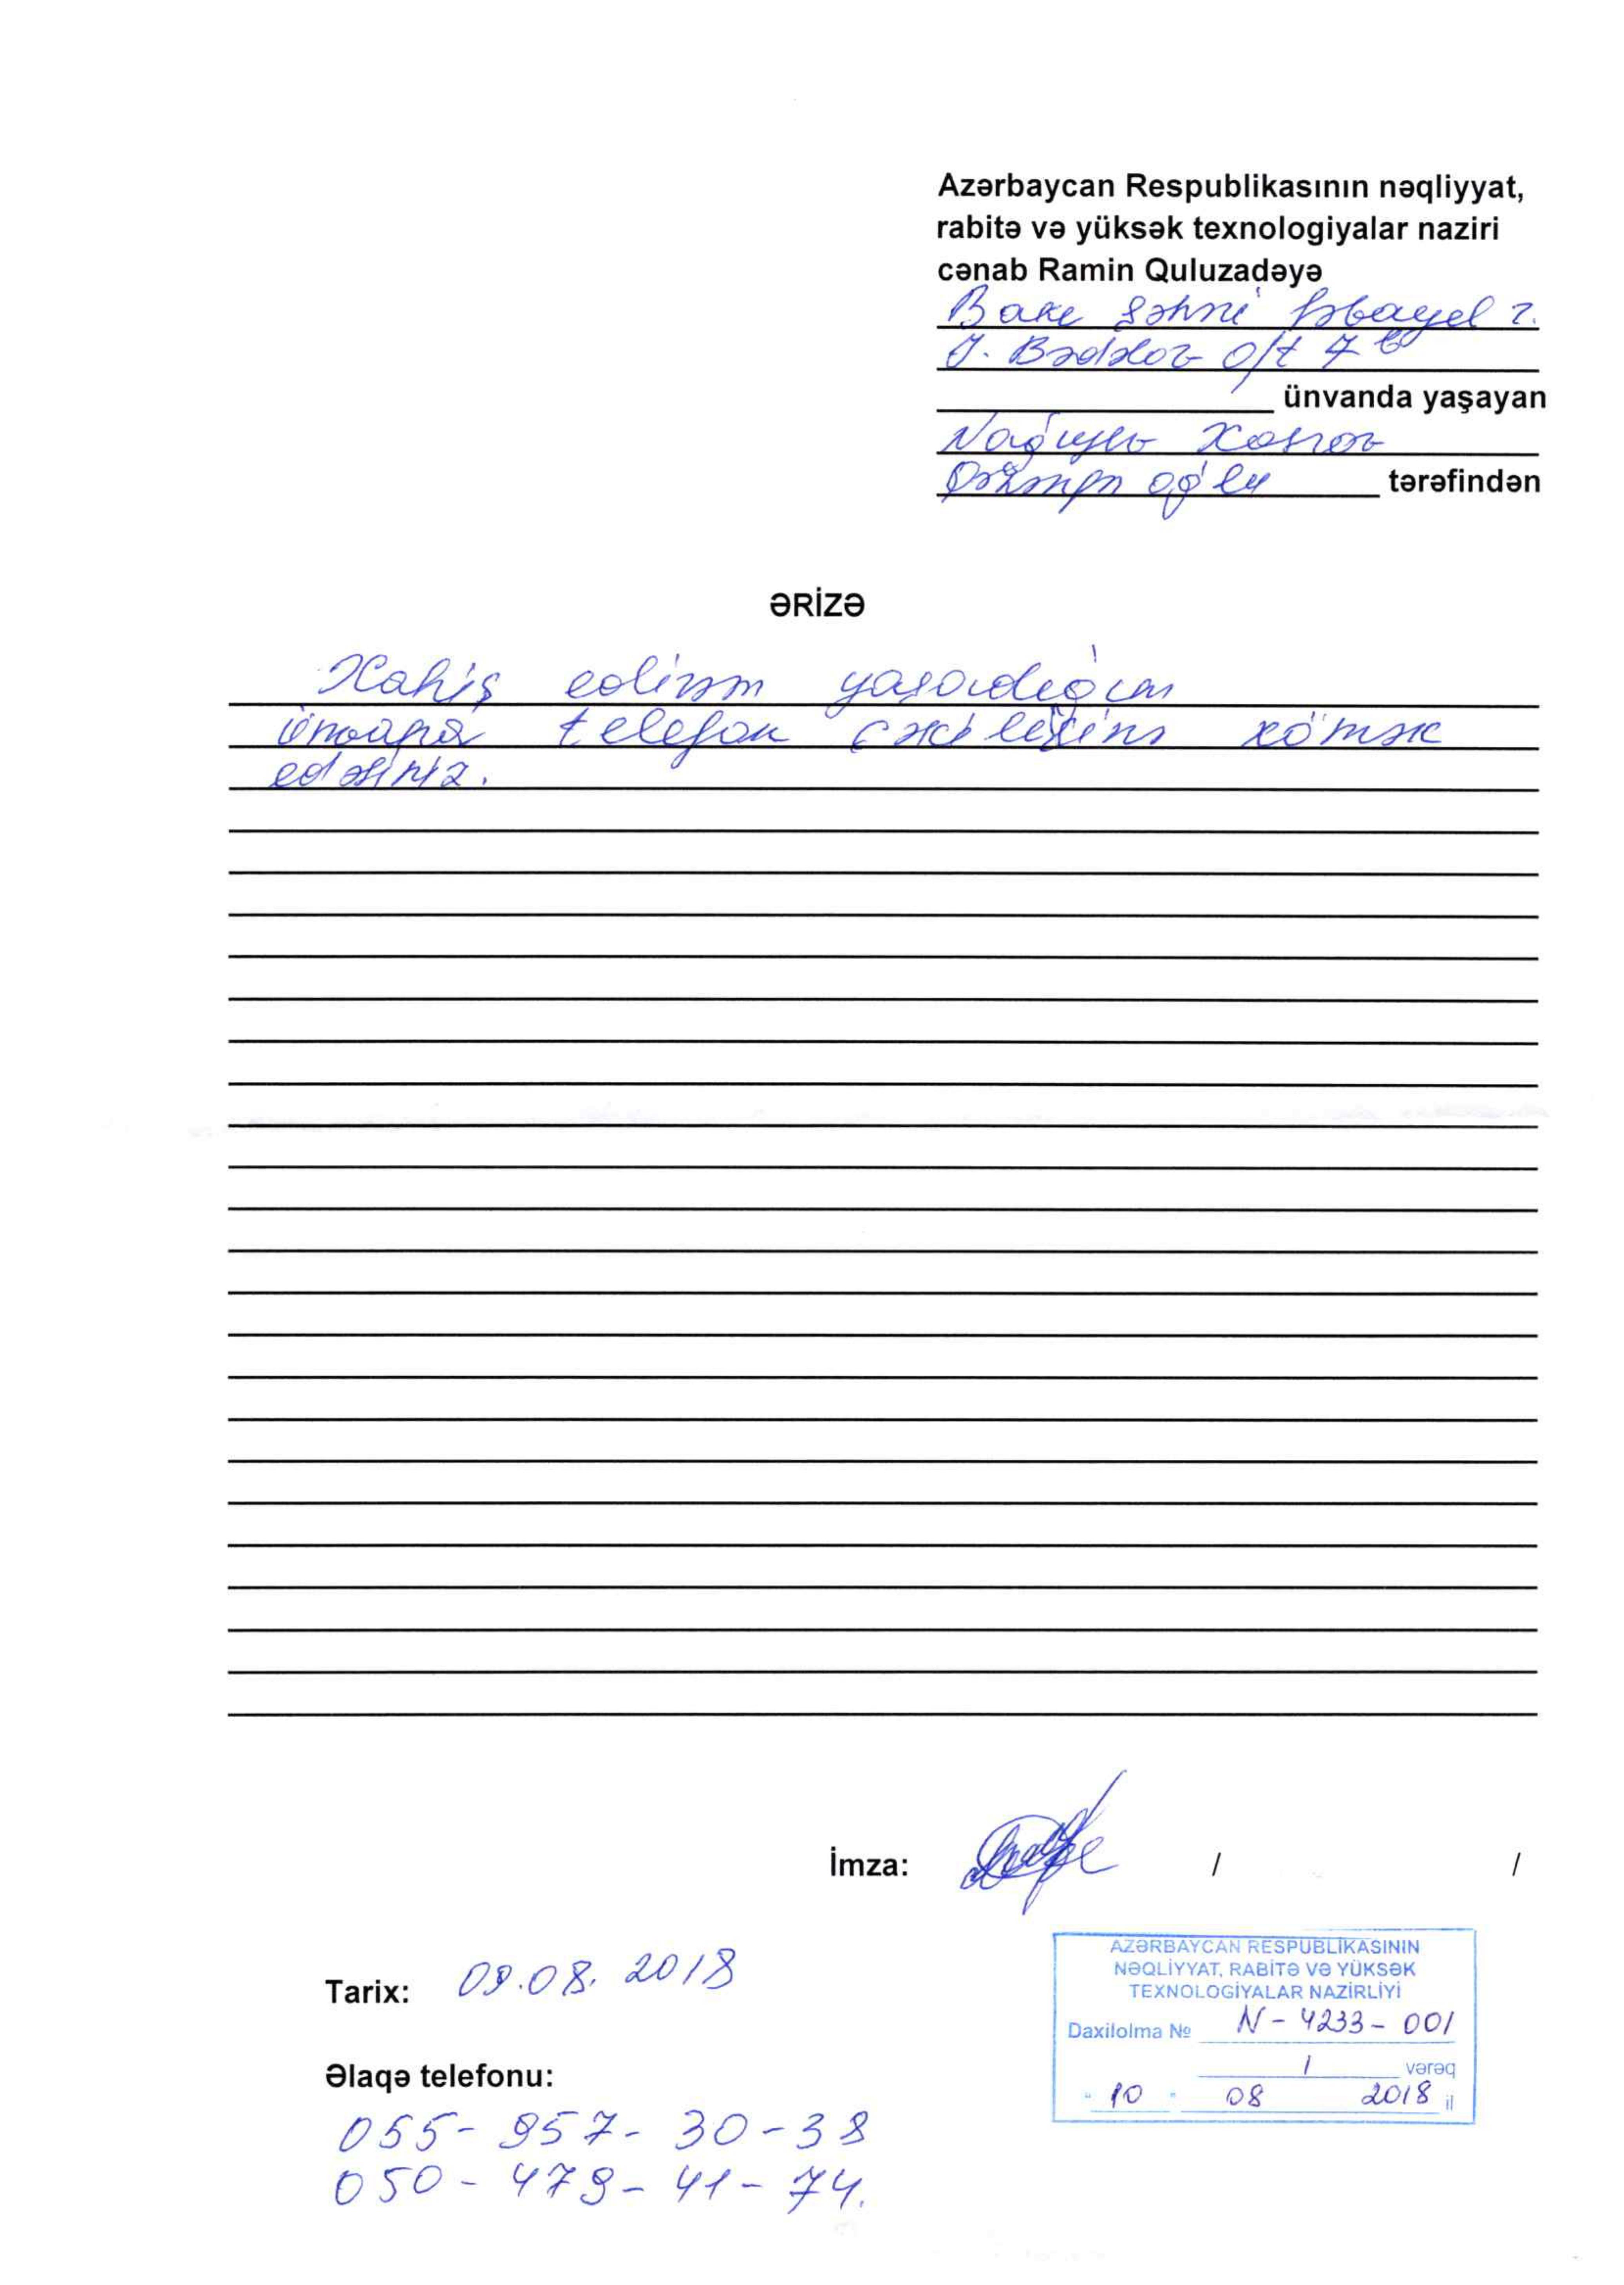 Azərbaycan Respublikasının nəqliyyat,
rabitə və yüksək texnologiyalar naziri
cənab Ramin Quluzadəyə
Bakı şəhri Səbayel r.
Bədəlov 7
ünvanda yaşayan
Nağıyev
oğlu tərəfindən
ƏRİZƏ
Xahiş edirəm yaşadığım
ünvana telefon çəkilişinə kömək
edəsiniz.
İmza: / /
Tarix: 09.08.2018
Əlaqə telefonu:
055-957-30-38
050-479-41-74.
AZƏRBAYCAN RESPUBLİKASININ
NƏQLİYYAT, RABİTƏ VƏ YÜKSƏK
TEXNOLOGİYALAR NAZİRLİYİ
Daxilolma № N-4233-001
1 vərəq
"10" 08 2018 il